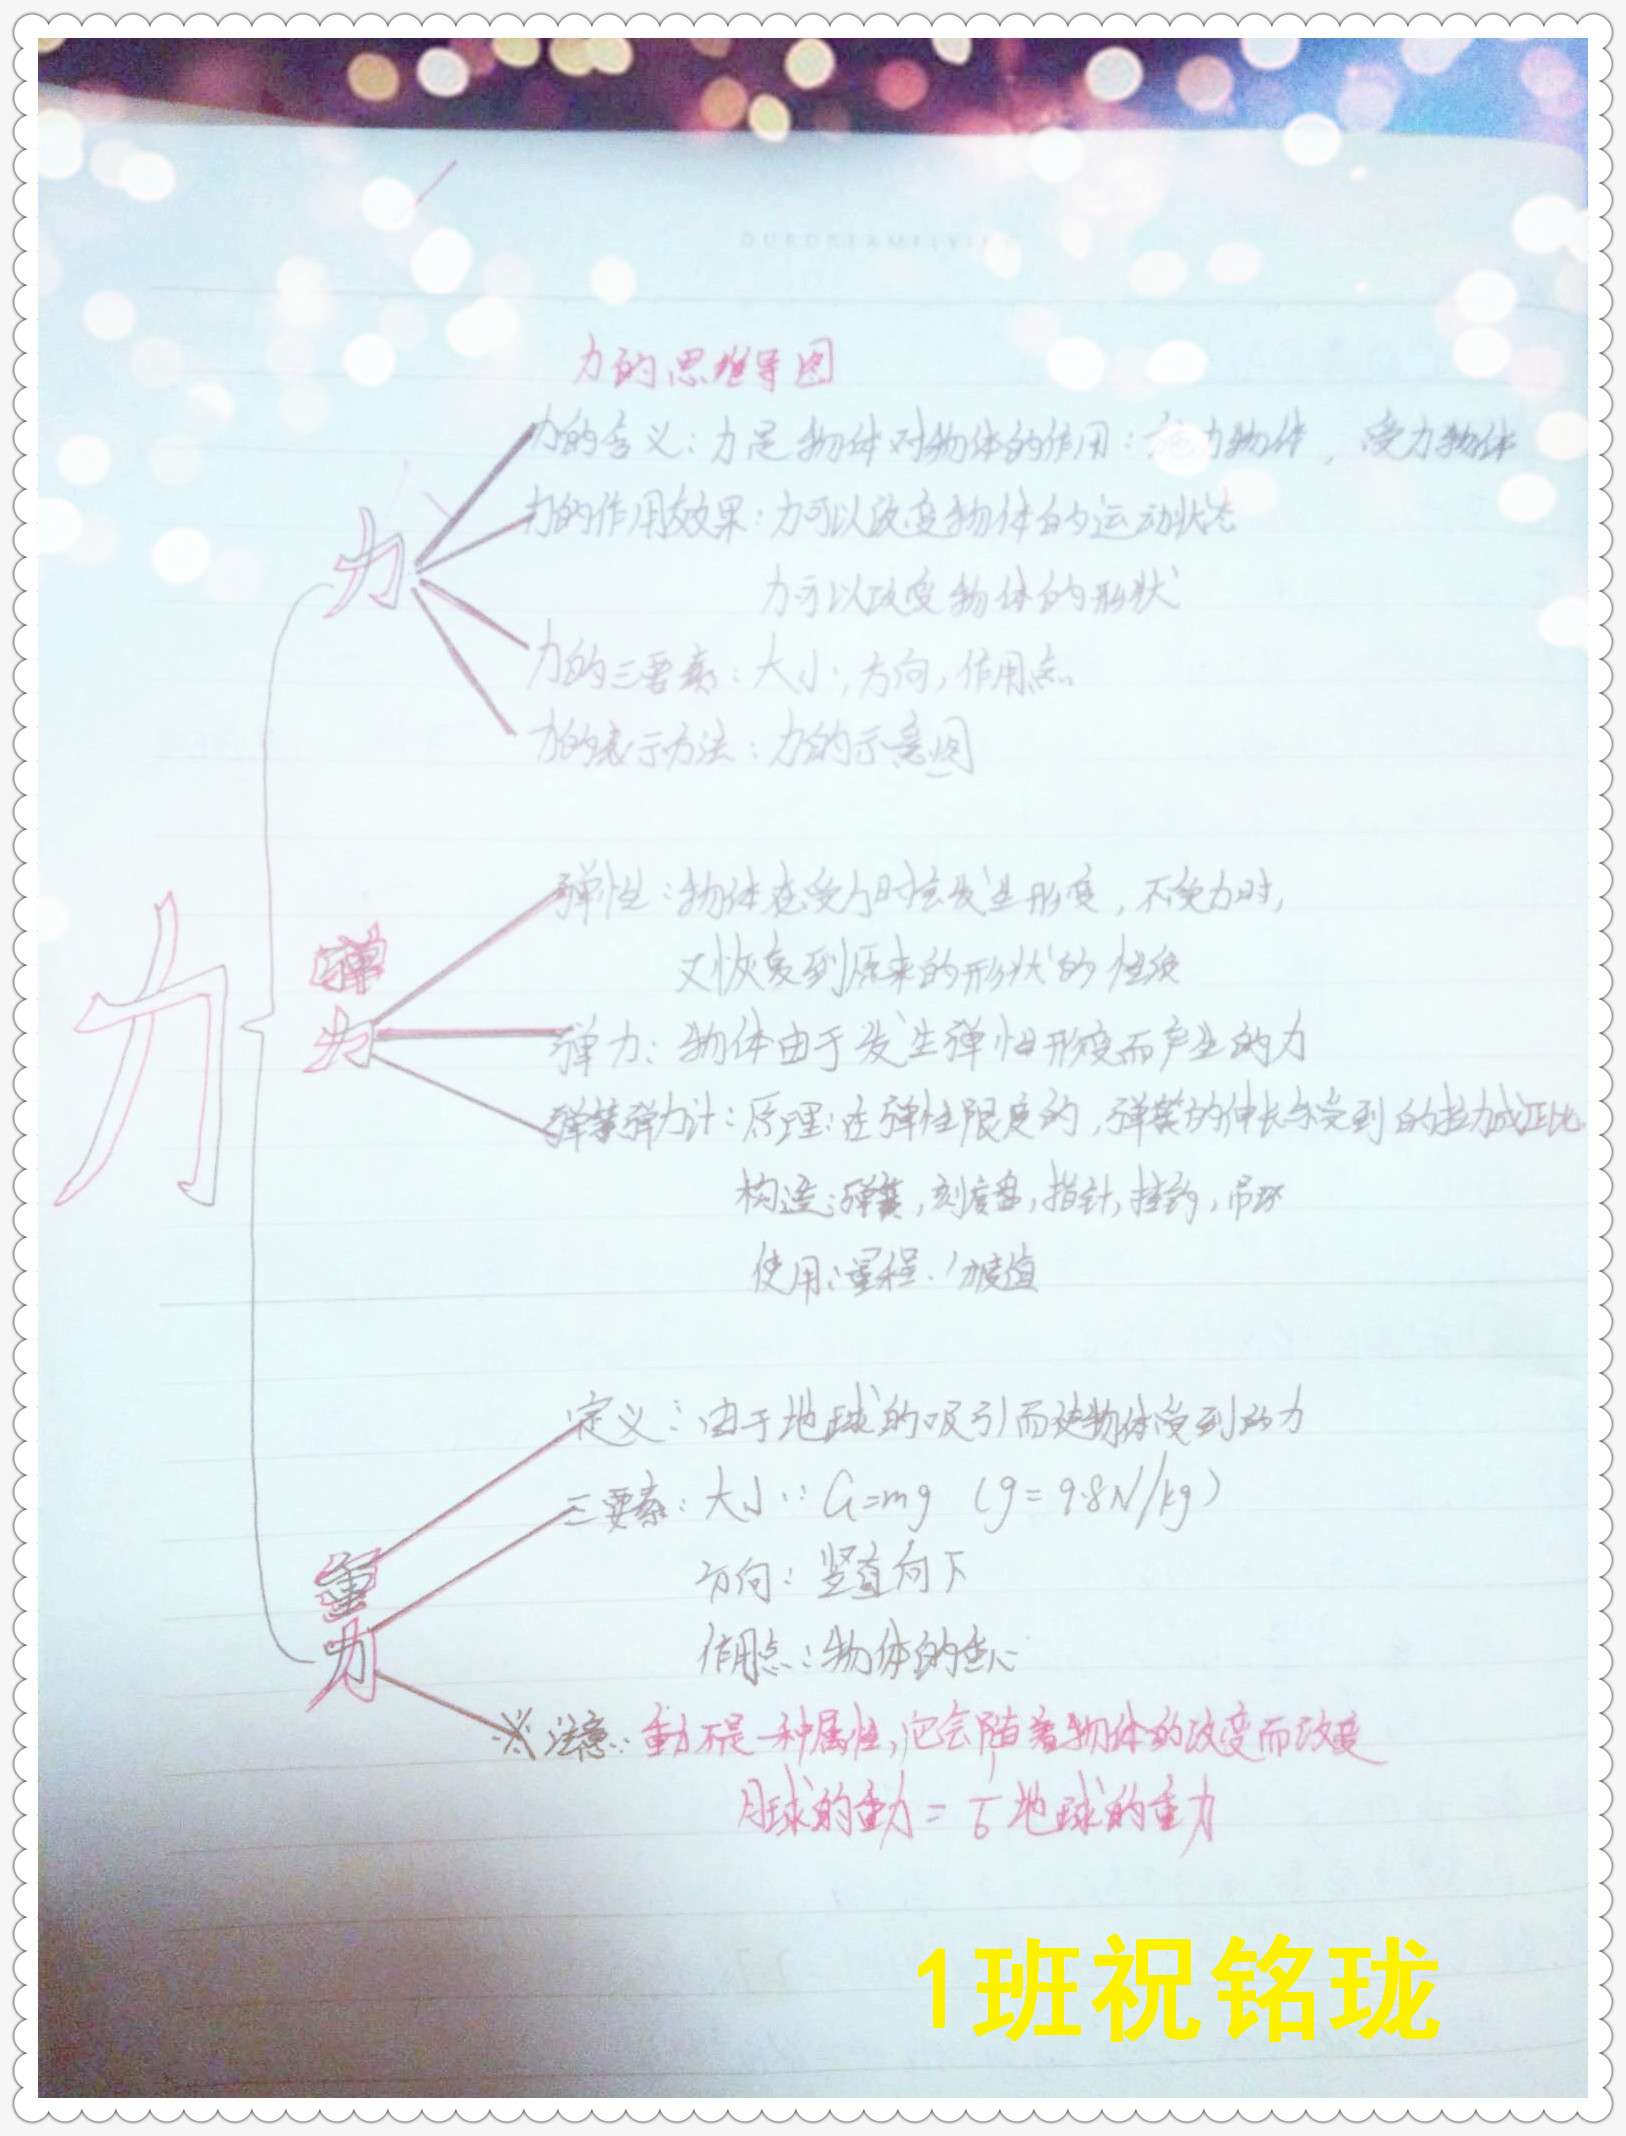 力的思维导图
力
力的含义：力是物体对物体的作用：施力物体，受力物体
力的作用效果：力可以改变物体的运动状态
力可以改变物体的形状
力的三要素：大小，方向，作用点
力的表示方法：力的示意图
力
弹力
弹性：物体在受力时会发生形变，不受力时，
又恢复到原来的形状的性质
弹力：物体由于发生弹性形变而产生的力
弹簧弹力计：原理：在弹性限度的，弹簧的伸长与受到的拉力成正比
构造：弹簧，刻度盘，指针，挂钩，吊环
使用：量程．分度值
重力
定义：由于地球的吸引而使物体受到的力
三要素：大小：G=mg （g=9.8N/kg）
方向：竖直向下
作用点：物体的重心
※注意：重力不是一种属性，它会随着物体的改变而改变
月球的重力= 地球的重力
1班祝铭珑